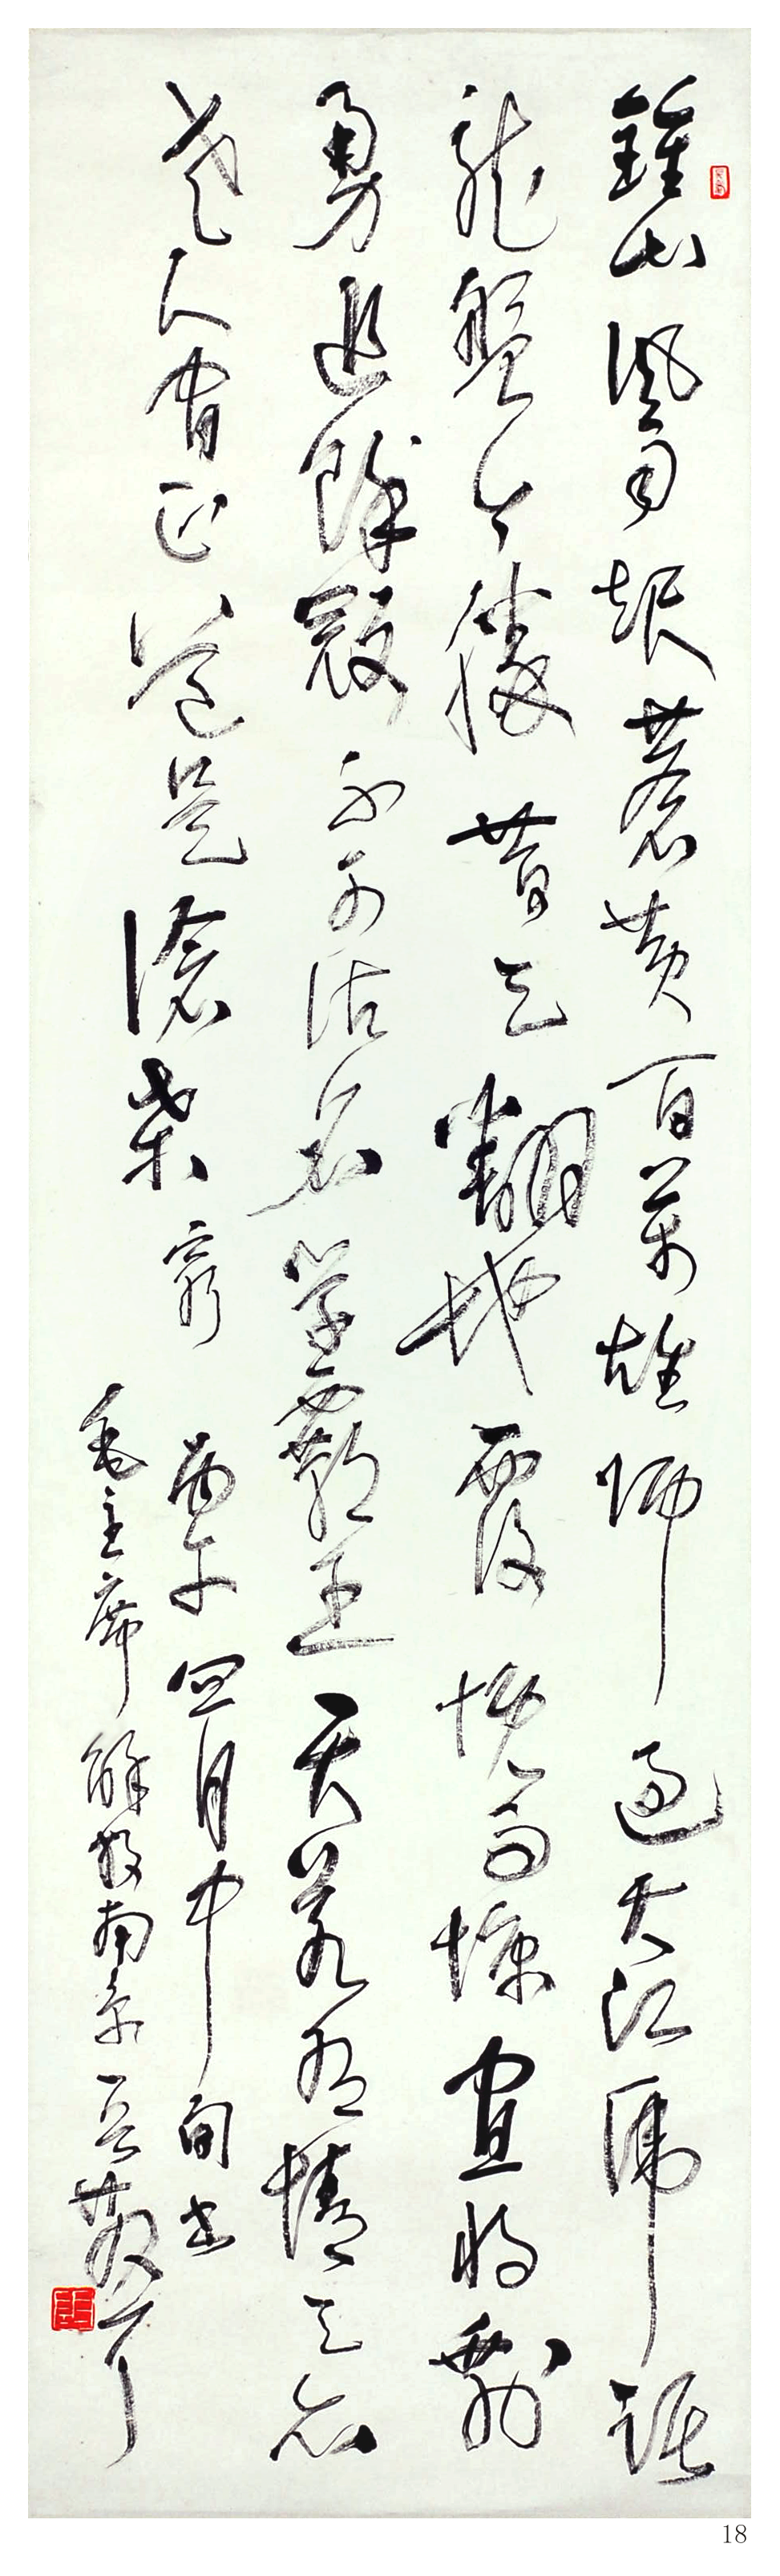 鍾山風雨起蒼黃百萬雄師過大江虎踞
龍盤今勝昔天翻地覆慨而慷宜將剩
勇追餘寇不可沽名學霸王天若有情天亦
老人間正道是滄桑 窮 丙午四月中旬書
毛主席解放南京一首 散耳
18